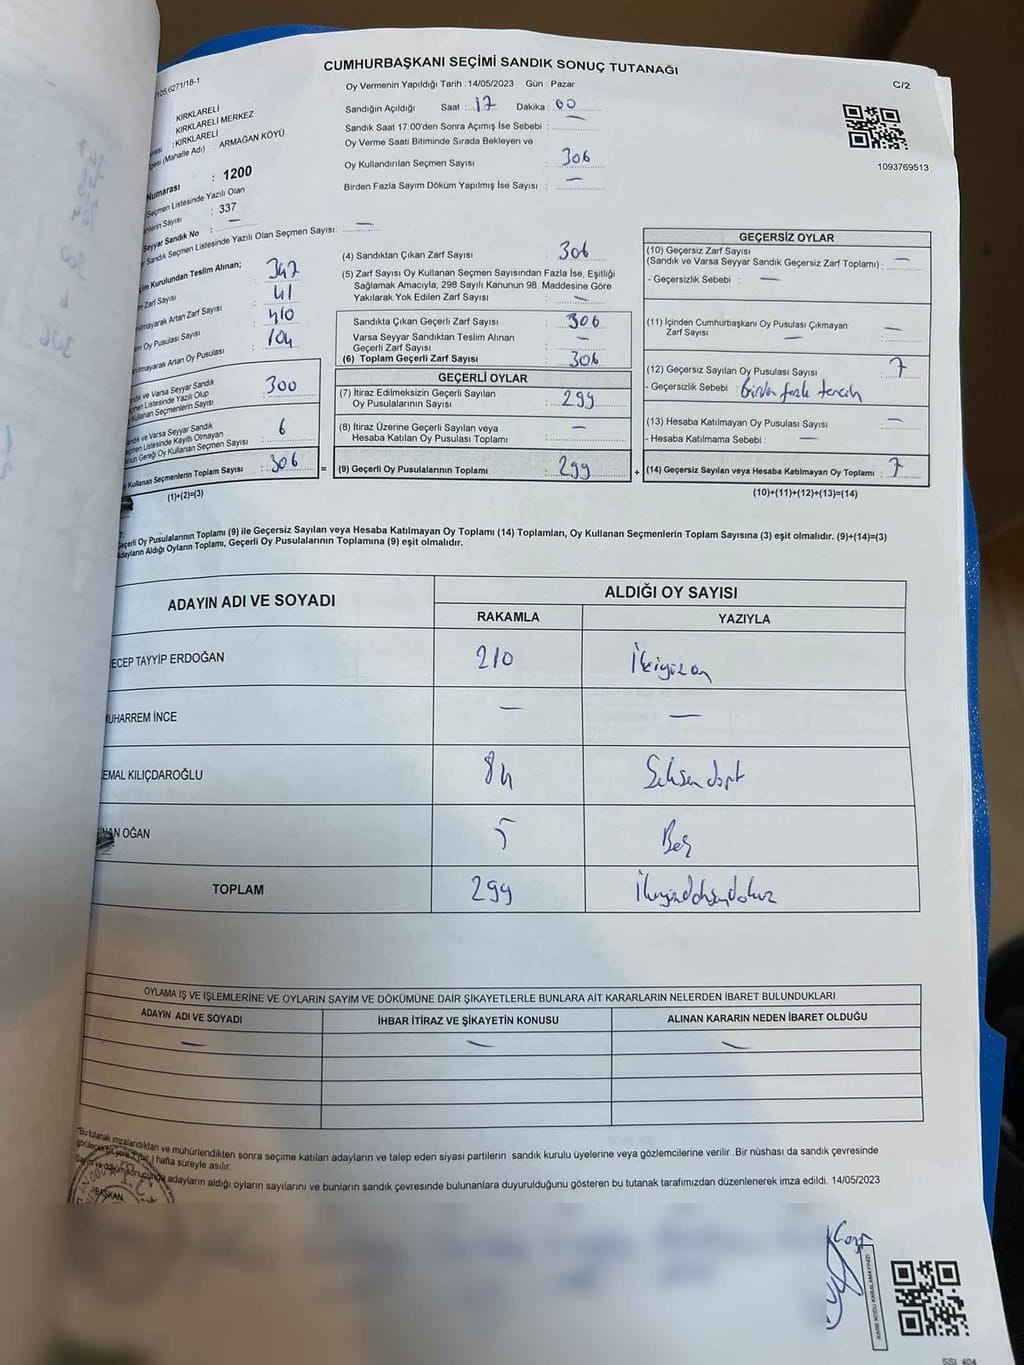 CUMHURBAŞKANI SEÇİMİ SANDIK SONUÇ TUTANAĞI
105.6271/18-1
Oy Vermenin Yapıldığı Tarih : 14/05/2023 Gün : Pazar
C/2
Sandığın Açıldığı Saat : 17 Dakika : 00
Sandık Saat 17:00'den Sonra Açımış İse Sebebi : —
Oy Verme Saati Bitiminde Sırada Bekleyen ve
Oy Kullandırılan Seçmen Sayısı : 306
Birden Fazla Sayım Döküm Yapılmış İse Sayısı : —
1093769513
KIRKLARELİ
KIRKLARELİ MERKEZ
: KIRKLARELİ
(Mahalle Adı) ARMAĞAN KÖYÜ
Numarası : 1200
Seçmen Listesinde Yazılı Olan
Sayısı : 337
Seyyar Sandık No : —
Sandık Seçmen Listesinde Yazılı Olan Seçmen Sayısı: —
Kurulundan Teslim Alınan;
Zarf Sayısı 347
Artan Zarf Sayısı 41
Oy Pusulası Sayısı 410
Artan Oy Pusulası 104
ve Varsa Seyyar Sandık
Listesinde Yazılı Olup
Kullanan Seçmenlerin Sayısı : 300
ve Varsa Seyyar Sandık
Listesinde Kayıtlı Olmayan
Gereği Oy Kullanan Seçmen Sayısı : 6
Kullanan Seçmenlerin Toplam Sayısı : 306 =
(1)+(2)=(3)
(4) Sandıktan Çıkan Zarf Sayısı : 306
(5) Zarf Sayısı Oy Kullanan Seçmen Sayısından Fazla İse, Eşitliği
Sağlamak Amacıyla, 298 Sayılı Kanunun 98. Maddesine Göre
Yakılarak Yok Edilen Zarf Sayısı : —
Sandıkta Çıkan Geçerli Zarf Sayısı : 306
Varsa Seyyar Sandıktan Teslim Alınan
Geçerli Zarf Sayısı : —
(6) Toplam Geçerli Zarf Sayısı : 306
GEÇERLİ OYLAR
(7) İtiraz Edilmeksizin Geçerli Sayılan
Oy Pusulalarının Sayısı : 299
(8) İtiraz Üzerine Geçerli Sayılan veya
Hesaba Katılan Oy Pusulası Toplamı : —
(9) Geçerli Oy Pusulalarının Toplamı : 299 +
GEÇERSİZ OYLAR
(10) Geçersiz Zarf Sayısı
(Sandık ve Varsa Seyyar Sandık Geçersiz Zarf Toplamı) : —
- Geçersizlik Sebebi : —
(11) İçinden Cumhurbaşkanı Oy Pusulası Çıkmayan
Zarf Sayısı — : —
(12) Geçersiz Sayılan Oy Pusulası Sayısı : 7
- Geçersizlik Sebebi : Birden fazla tercih
(13) Hesaba Katılmayan Oy Pusulası Sayısı : —
- Hesaba Katılmama Sebebi : —
(14) Geçersiz Sayılan veya Hesaba Katılmayan Oy Toplamı : 7
(10)+(11)+(12)+(13)=(14)
Oy Pusulalarının Toplamı (9) ile Geçersiz Sayılan veya Hesaba Katılmayan Oy Toplamı (14) Toplamları, Oy Kullanan Seçmenlerin Toplam Sayısına (3) eşit olmalıdır. (9)+(14)=(3)
Aldığı Oyların Toplamı, Geçerli Oy Pusulalarının Toplamına (9) eşit olmalıdır.
ADAYIN ADI VE SOYADI ALDIĞI OY SAYISI
RAKAMLA YAZIYLA
ECEP TAYYİP ERDOĞAN 210 İkiyüzon
UHARREM İNCE — —
EMAL KILIÇDAROĞLU 84 Seksen dört
NAN OĞAN 5 Beş
TOPLAM 299 İkiyüzdoksandokuz
OYLAMA İŞ VE İŞLEMLERİNE VE OYLARIN SAYIM VE DÖKÜMÜNE DAİR ŞİKAYETLERLE BUNLARA AİT KARARLARIN NELERDEN İBARET BULUNDUKLARI
ADAYIN ADI VE SOYADI İHBAR İTİRAZ VE ŞİKAYETİN KONUSU ALINAN KARARIN NEDEN İBARET OLDUĞU
— — —
"Bu tutanak imzalandıktan ve mühürlendikten sonra seçime katılan adayların ve talep eden siyasi partilerin sandık kurulu üyelerine veya gözlemcilerine verilir .Bir nüshası da sandık çevresinde
hafta süreyle asılır.
adayların aldığı oyların sayılarını ve bunların sandık çevresinde bulunanlara duyurulduğunu gösteren bu tutanak tarafımızdan düzenlenerek imza edildi. 14/05/2023
BAŞKAN
KARE KODU KARALAMAYINIZ!
SSI_404